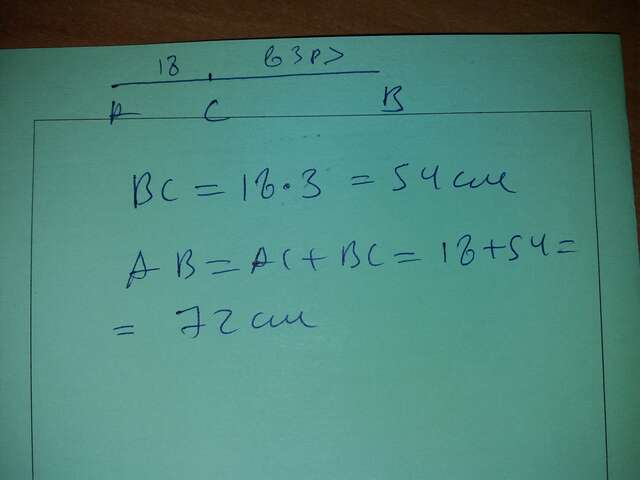 18 в 3 р >
A C B
BC = 18 · 3 = 54 см
AB = AC + BC = 18 + 54 =
= 72 см